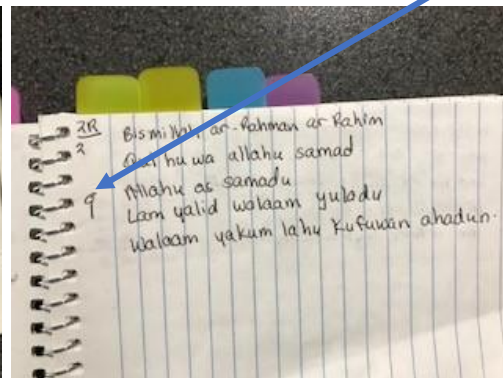 2R
2
Bismillah ar-Rahman ar Rahim
Qul hu wa allahu samad
Allahu as samadu
9
Lam yalid walaam yuladu
walaam yakum lahu Kufuwan ahadun.